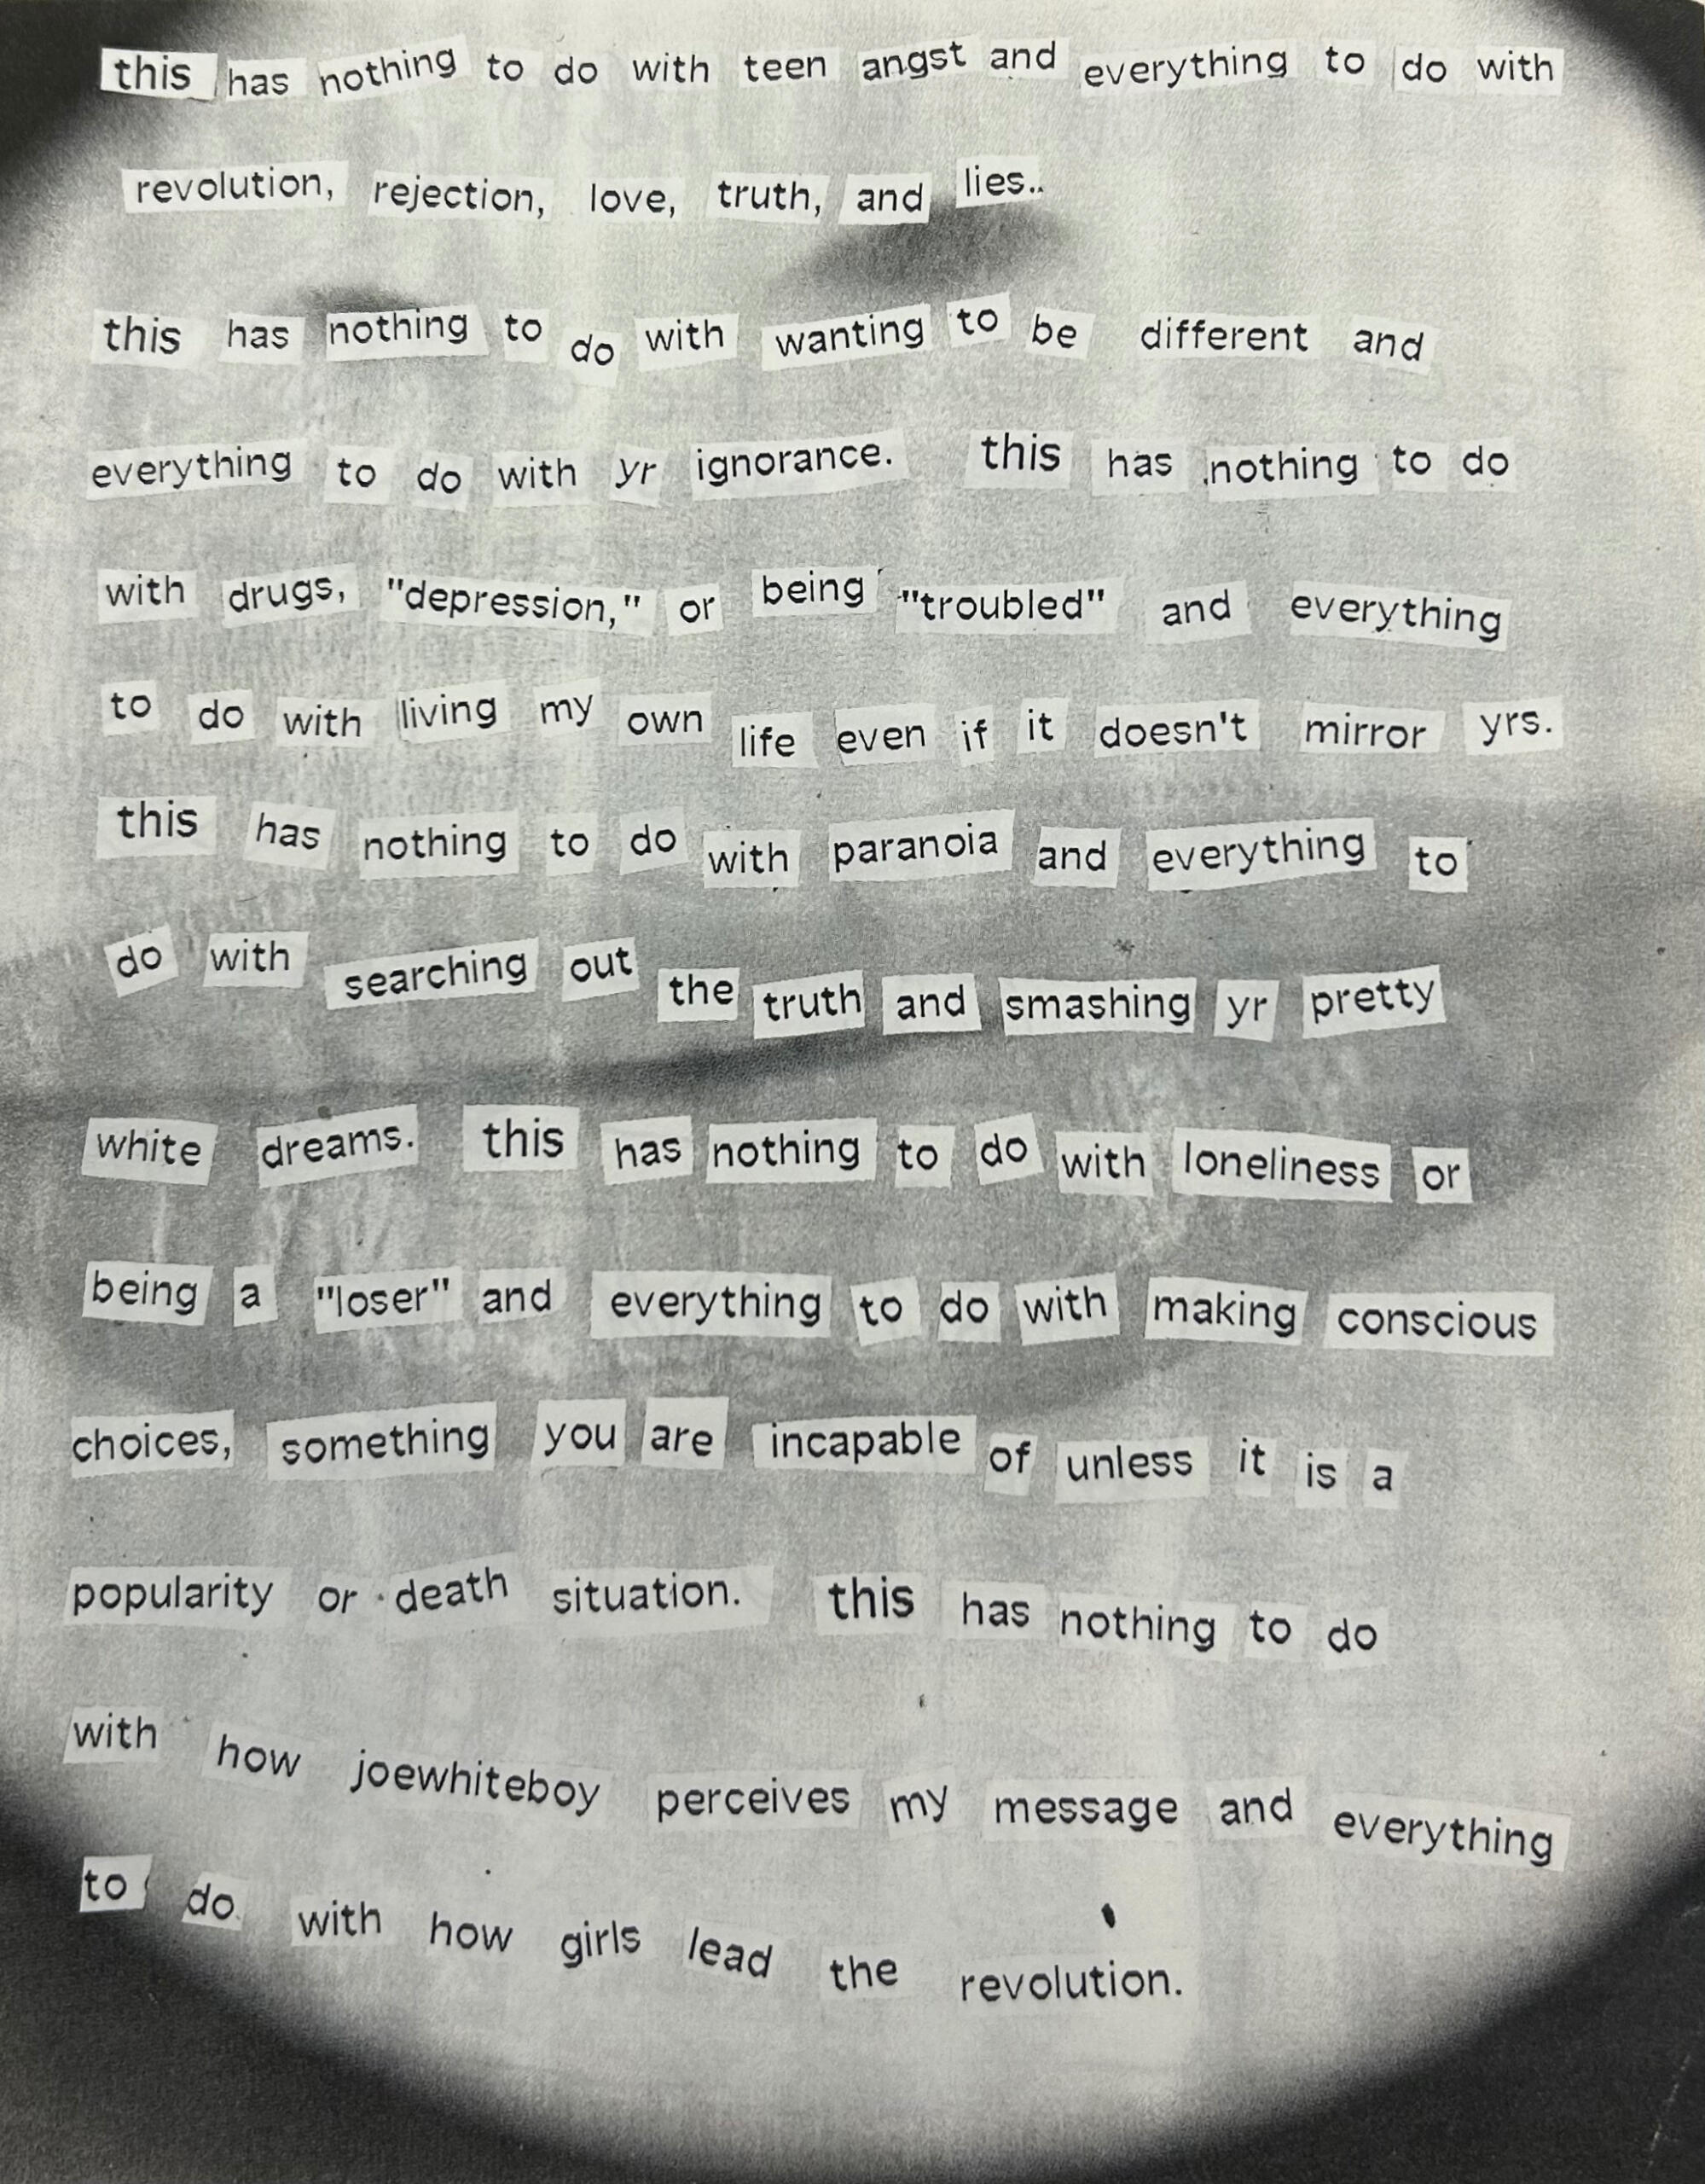 this has nothing to do with teen angst and everything to do with
revolution, rejection, love, truth, and lies..
this has nothing to do with wanting to be different and
everything to do with yr ignorance. this has nothing to do
with drugs, "depression," or being "troubled" and everything
to do with living my own life even if it doesn't mirror yrs.
this has nothing to do with paranoia and everything to
do with searching out the truth and smashing yr pretty
white dreams. this has nothing to do with loneliness or
being a "loser" and everything to do with making conscious
choices, something you are incapable of unless it is a
popularity or death situation. this has nothing to do
with how joewhiteboy perceives my message and everything
to do with how girls lead the revolution.